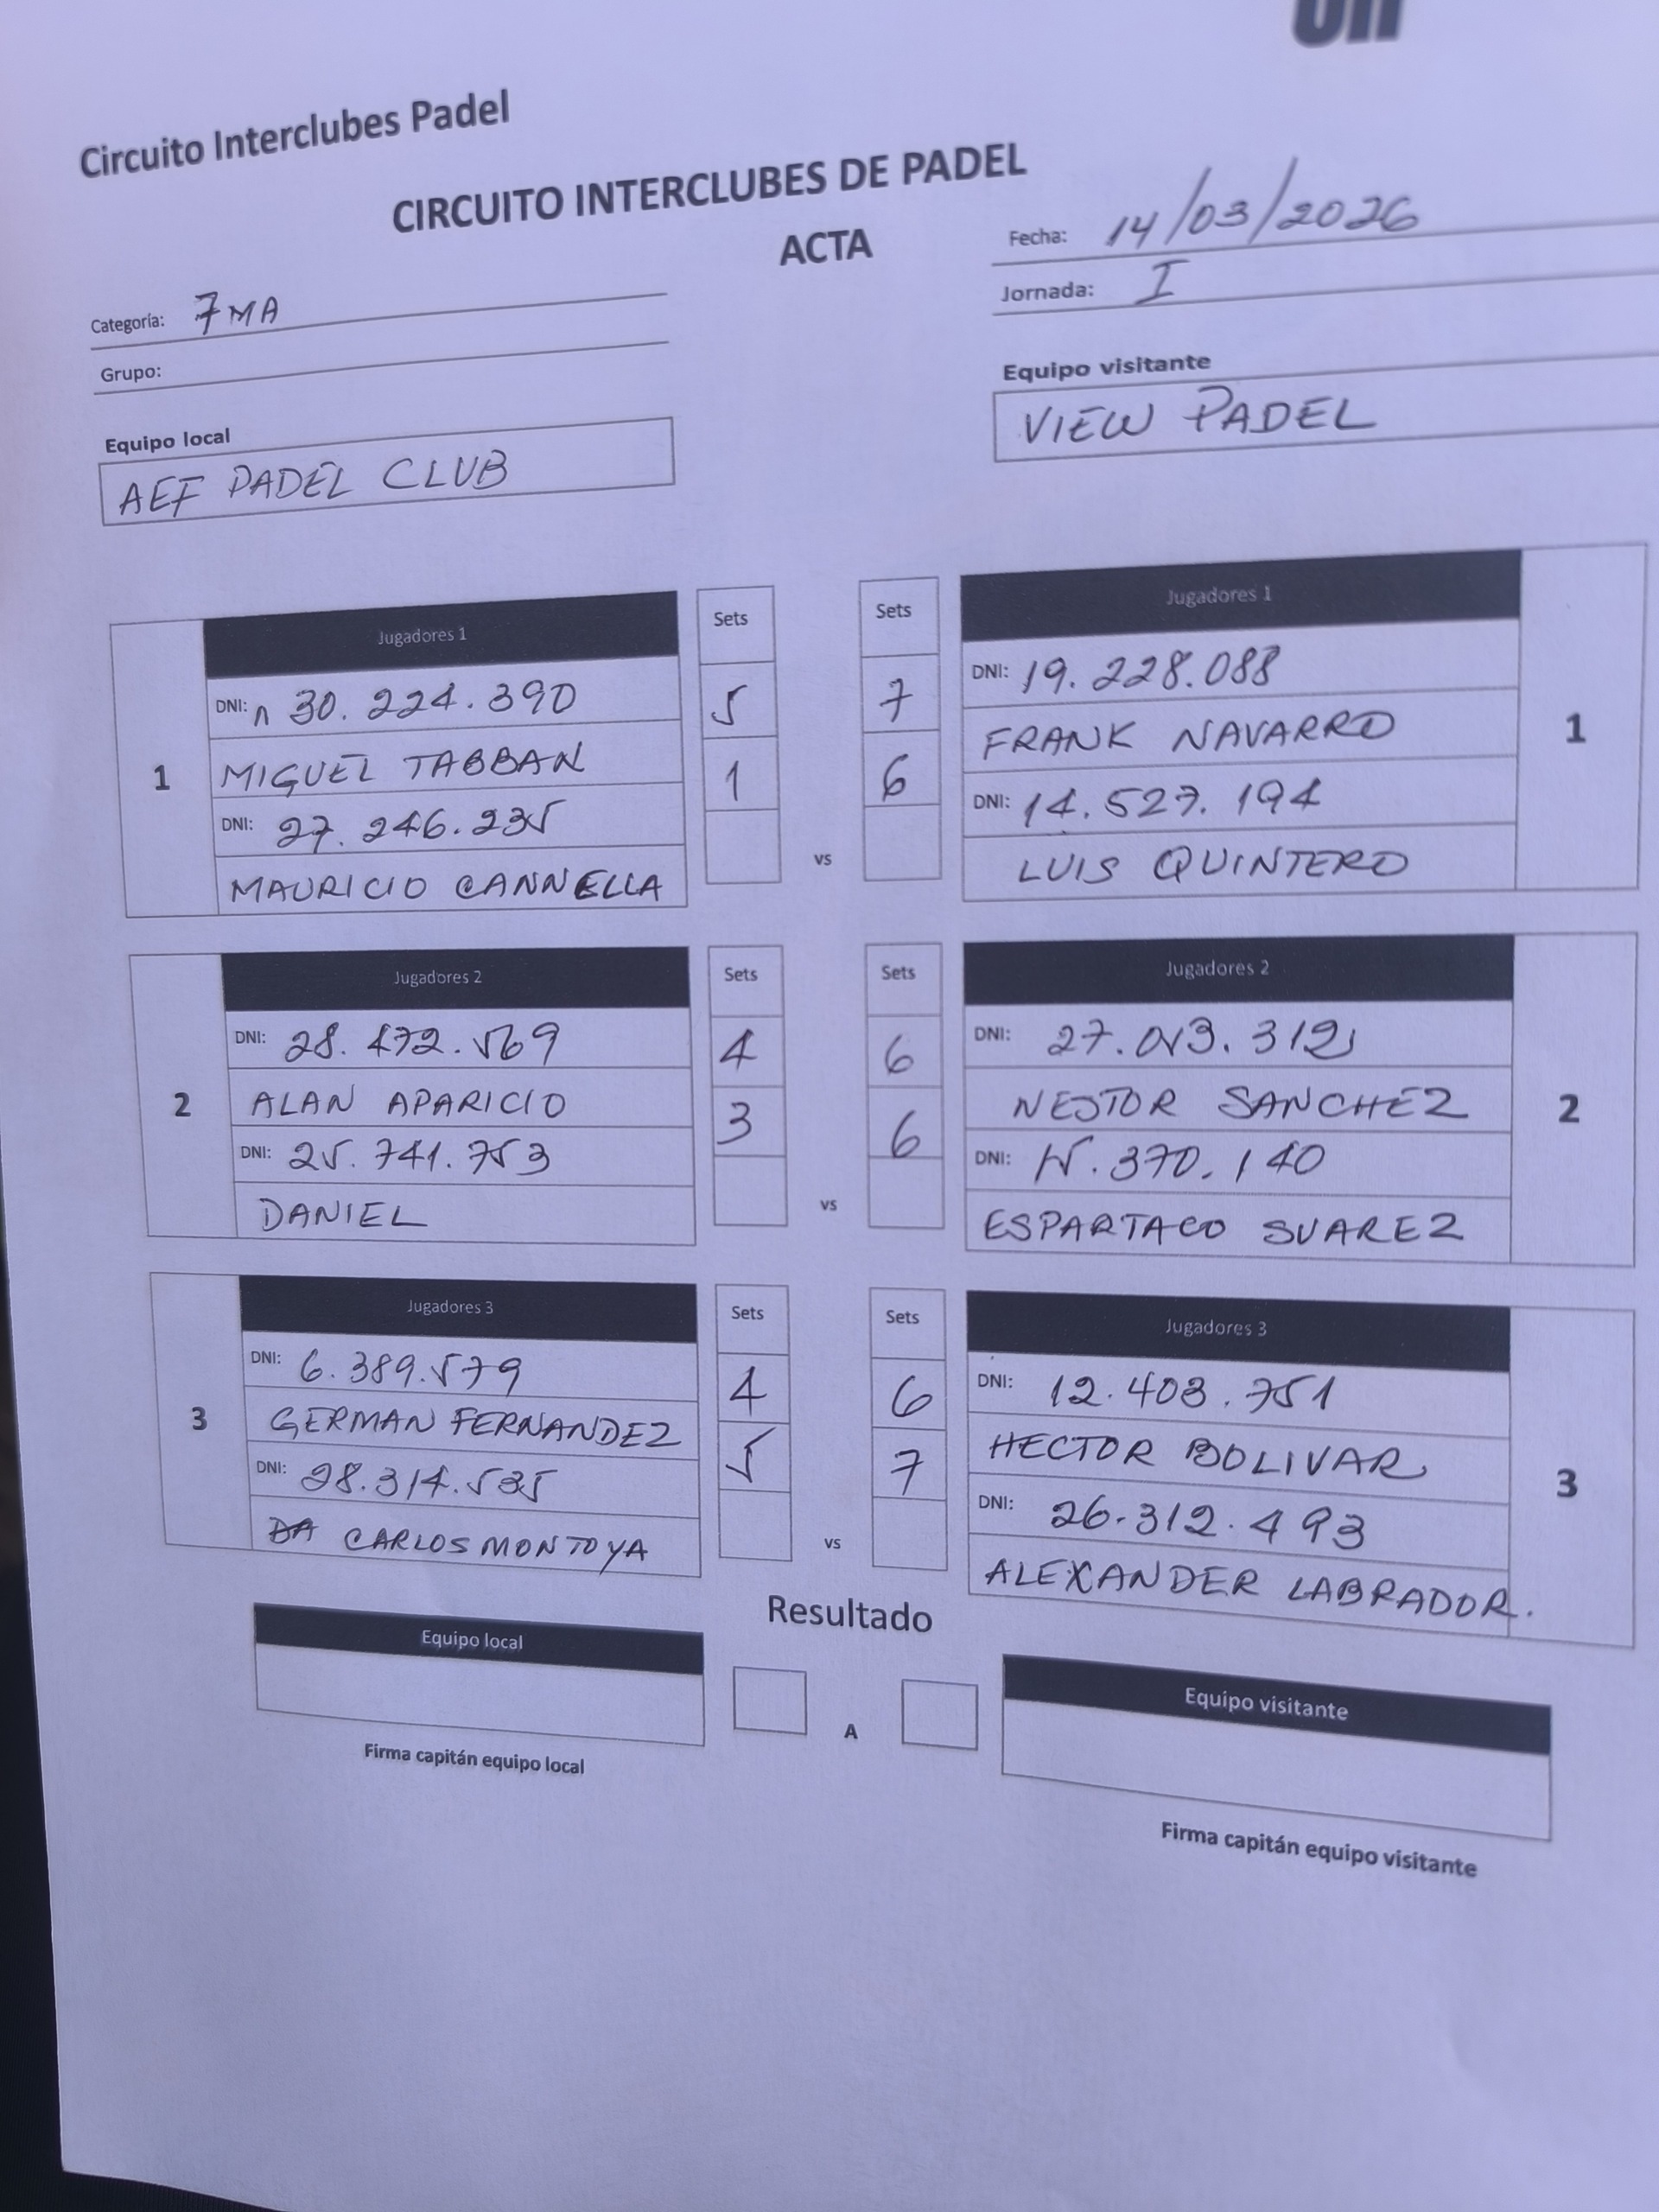 Circuito Interclubes Padel
CIRCUITO INTERCLUBES DE PADEL
ACTA
Fecha: 14/03/2026
Jornada: I
Categoría: 7MA
Grupo:
Equipo local
AEF PADEL CLUB
Equipo visitante
VIEW PADEL
1
Jugadores 1
DNI: 30.224.390
MIGUEL TABBAN
DNI: 27.246.235
MAURICIO CANNELLA
Sets
5
1
vs
Sets
7
6
Jugadores 1
DNI: 19.228.088
FRANK NAVARRO
DNI: 14.527.194
LUIS QUINTERO
1
2
Jugadores 2
DNI: 28.472.569
ALAN APARICIO
DNI: 25.741.753
DANIEL
Sets
4
3
vs
Sets
6
6
Jugadores 2
DNI:
NESTOR SANCHEZ
DNI: 15.370.140
ESPARTACO SUAREZ
2
3
Jugadores 3
DNI: 6.389.579
GERMAN FERNANDEZ
DNI: 28.314.535
CARLOS MONTOYA
Sets
4
5
vs
Sets
6
7
Jugadores 3
DNI: 12.403.751
HECTOR BOLIVAR
DNI: 26.312.493
ALEXANDER LABRADOR.
3
Resultado
Equipo local
A
Equipo visitante
Firma capitán equipo local
Firma capitán equipo visitante